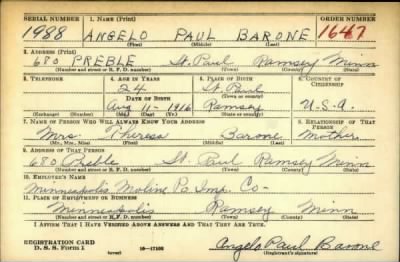 SERIAL NUMBER 1. NAME (Print) ORDER NUMBER
1988 ANGELO PAUL BARONE 1647
(First) (Middle) (Last)
2. ADDRESS (Print)
680 PREBLE St. Paul Ramsey Minn
(Number and street or R. F. D. number) (Town) (County) (State)
3. TELEPHONE 4. AGE IN YEARS 5. PLACE OF BIRTH 6. COUNTRY OF CITIZENSHIP
24 St. Paul
DATE OF BIRTH (Town or county)
Aug 11-1916 Ramsey U.S.A.
(Exchange) (Number) (Mo.) (Day) (Yr.) (State or country)
7. NAME OF PERSON WHO WILL ALWAYS KNOW YOUR ADDRESS 8. RELATIONSHIP OF THAT PERSON
Mrs. Theresa Barone Mother
(Mr., Mrs., Miss) (First) (Middle) (Last)
9. ADDRESS OF THAT PERSON
680 Preble St. Paul Ramsey Minn
(Number and street or R. F. D. number) (Town) (County) (State)
10. EMPLOYER'S NAME
Minneapolis Moline Po. Imp. Co-
11. PLACE OF EMPLOYMENT OR BUSINESS
Minneapolis Ramsey Minn
(Number and street or R. F. D. number) (Town) (County) (State)
I AFFIRM THAT I HAVE VERIFIED ABOVE ANSWERS AND THAT THEY ARE TRUE.
REGISTRATION CARD
D. S. S. Form 1 16-17105 Angelo Paul Barone
(Registrant's signature)